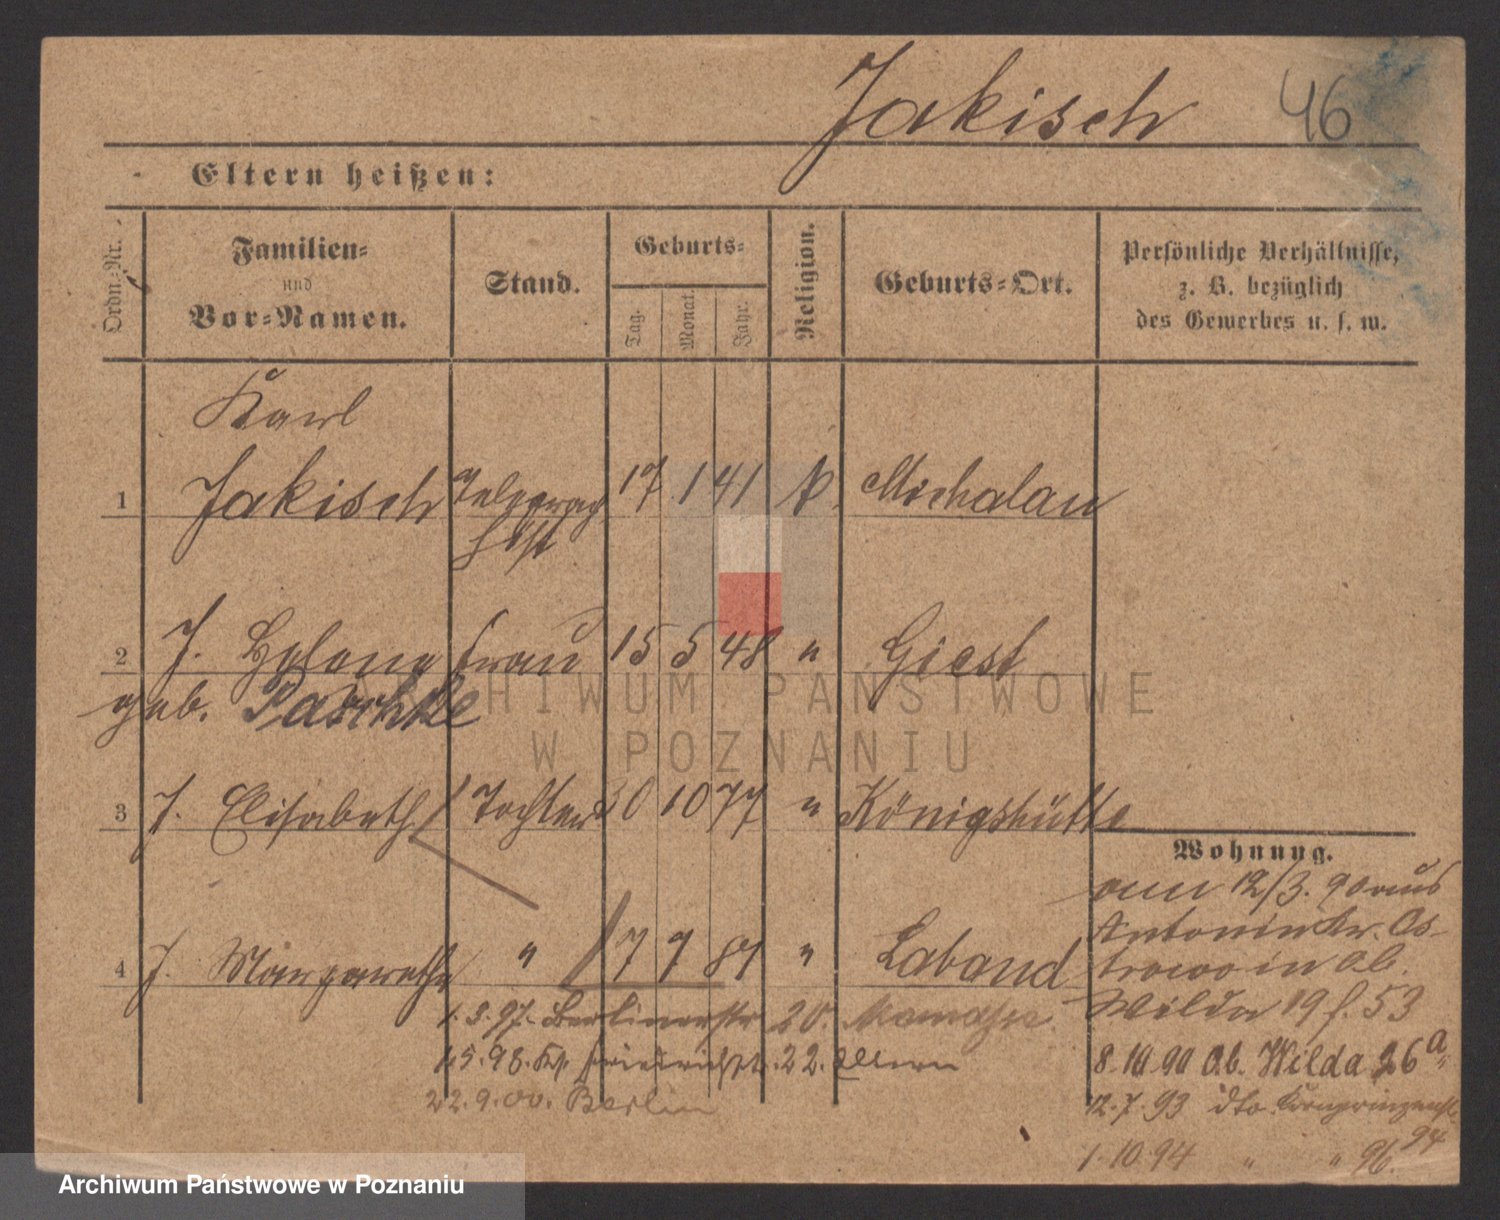 Jakisch 46
Eltern heißen:
Ordn.-Nr.
Familien- und Vor-Namen.
Stand.
Geburts-
Tag.
Monat.
Jahr.
Religion.
Geburts-Ort.
Persönliche Verhältnisse,
z. B. bezüglich
des Gewerbes u. s. w.
Karl
1 Jakisch 17 1 41 Michalau
2 J. Helene Frau 15 5 48 " Giest
geb. Paschke
3 J. Elisabeth Tochter 30 10 77 " Königshütte
4 J. Margarethe " 7 9 "  Laband
Wohnung.
am 12/3. 90 aus
Antonin Kr. Os-
trowo in Ob.
Wilda 19 f. 53
8.10.90 Ob. Wilda 26a
12.7.93 dto Kronprinzenstr. 94
1.10.94 " " 96.
1.5.98. Kg. Friedrichstr. 22. Eltern
22.9.00. Berlin
ARCHIWUM PAŃSTWOWE
W POZNANIU
Archiwum Państwowe w Poznaniu